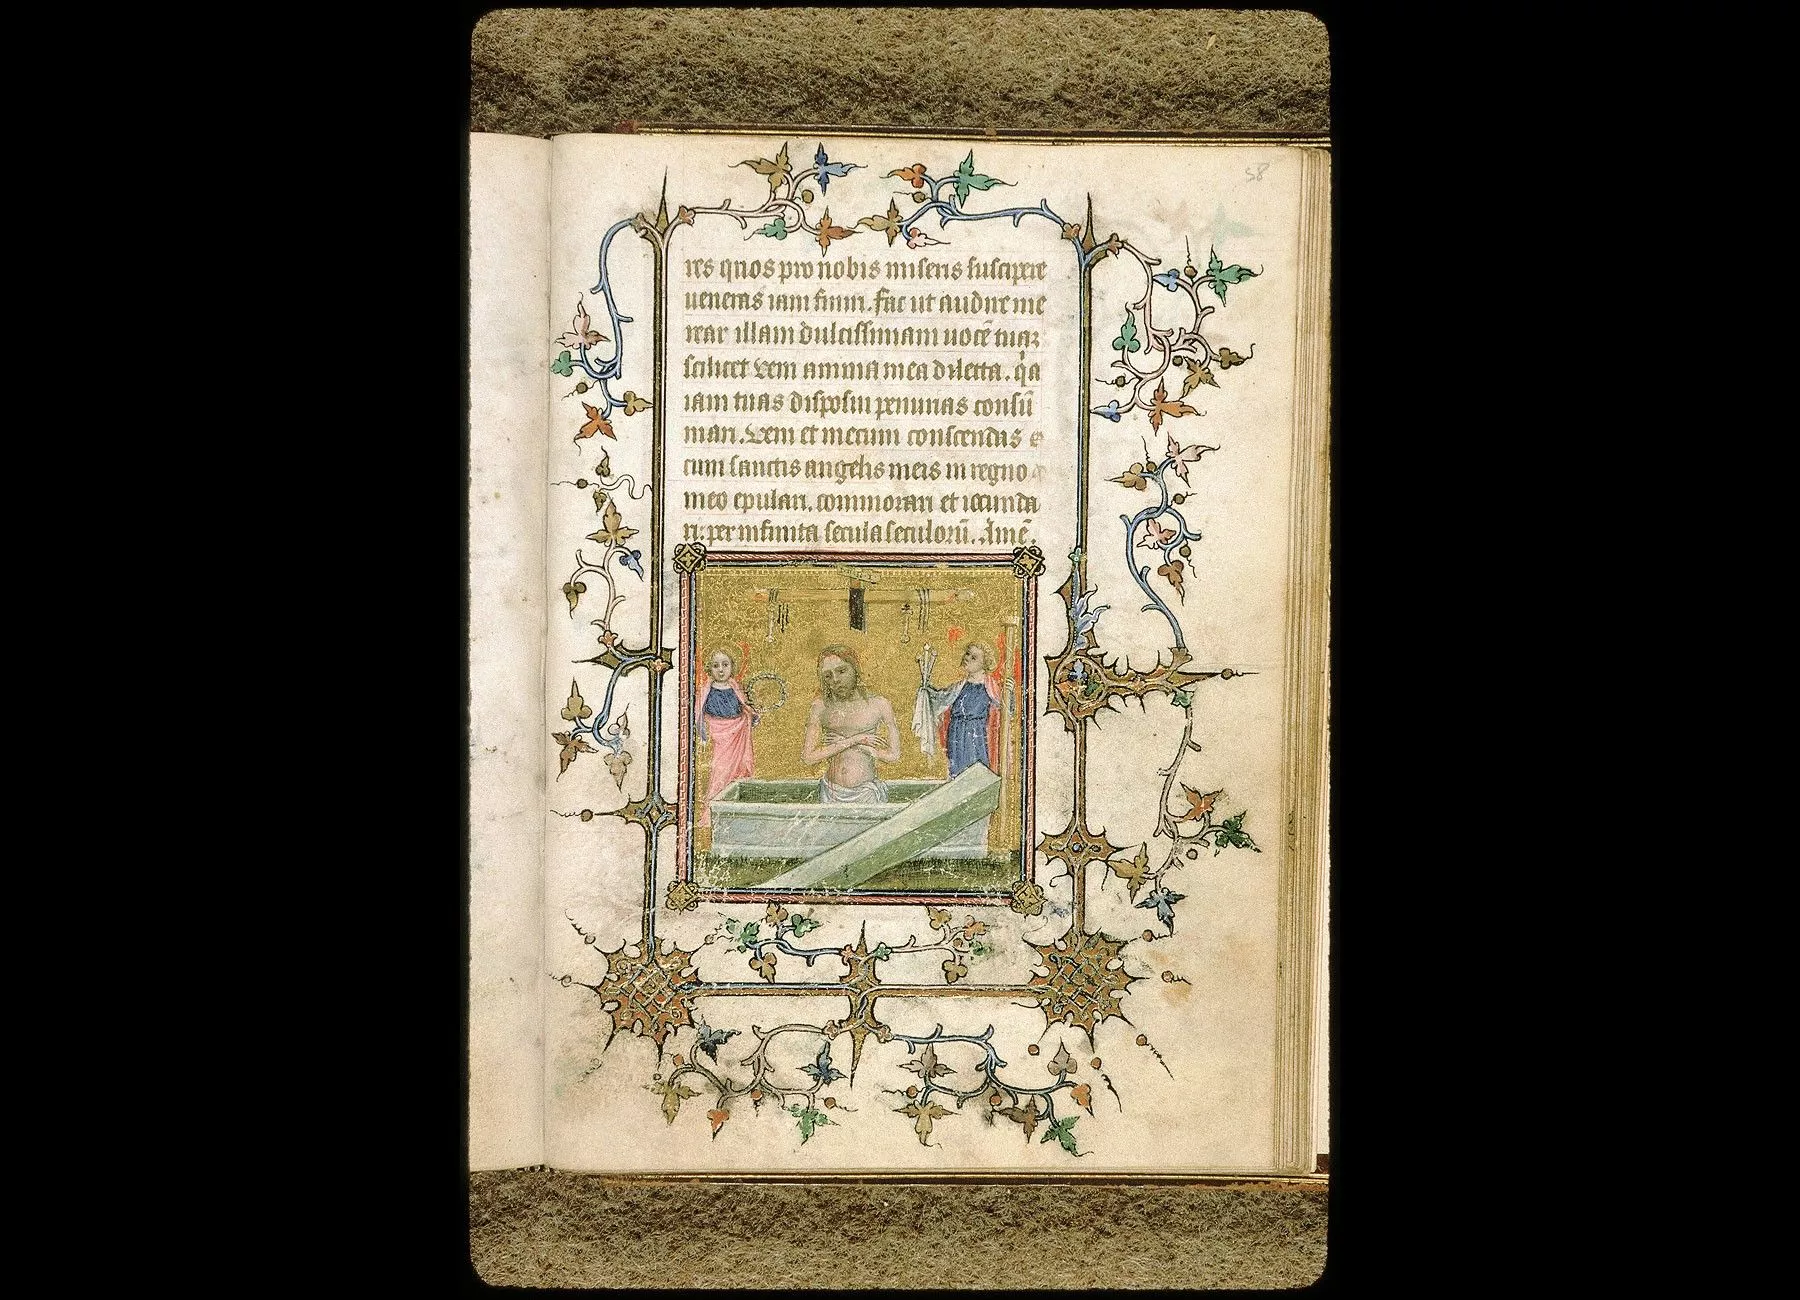 58
res quos pro nobis miseris suscipere
veneras iam finiri. fac ut audire me
rear illam dulcissimam vocē tuaꝫ
scilicet veni amima mea dilecta. qͥa
iam tuas disposui penurias consū
mari. Veni et mecum conscendas
cum sanctis angelis meis in regno
meo epulari. commorari et iocunda
ri: per infinita secula seculorū. Amē.